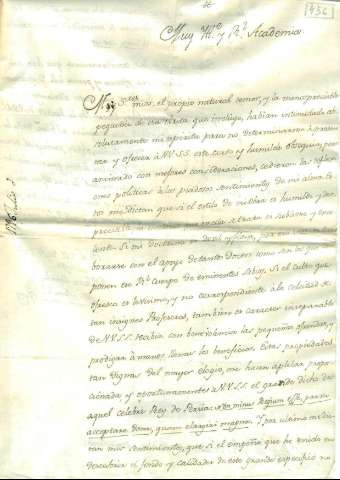 1456
Muy Il.e y R.l Academia
Muy S.res mios, el propio natural temor, y la menospreciable
pequeñez de esa carta que incluyo, habian intimidado ab-
solutamente mi espiritu para no determinarme à presen-
tar y ofrecer à V.SS. este corto y humilde obsequio, pero
animado con mejores consideraciones, cedieron las reflexi-
ones politicas à los piadosos sentimientos de mi alma. Es-
tos me dictan que si el estilo de mi obra es humilde y des-
preciable, la materia que en ella se trata es sublime y
Si mi doctrina es debil y
borarse con el apoyo de tantos Doctos como son los que com-
ponen ese R.l cuerpo de eminentes sabios. Si el culto que
ofresco es levisimo, y no correspondiente à la celsitud de
tan insignes Profesores, tambien es caracter inseparable
de V.SS. tratar con benevolencia las pequeñas ofrendas, y
prodigar à manos llenas los beneficios. Estas propiedades
tan dignas del mayor elogio, me hacen aplicar propor-
cionada y oportunamente à V.SS. el grande dicho de
aquel celebre Rey de Persia: non minus Regium est, parva
acceptare Dona, quam elargiri magna. Y por ultimo me dic-
tan mis sentimientos, que si el empeño que he tenido en
descubrir el fondo y calidades de este grande especifico no